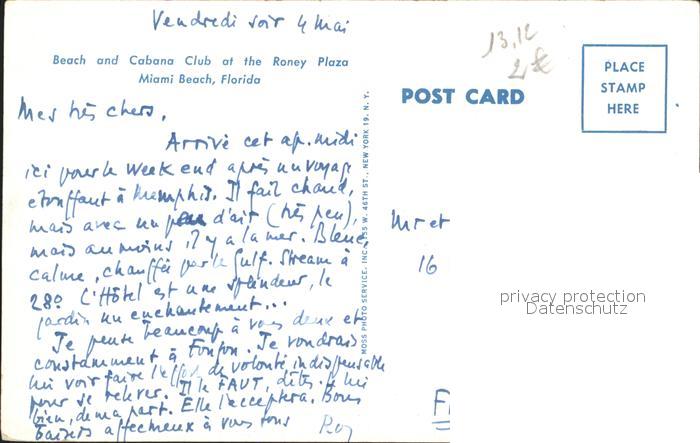 Vendredi soir 4 Mai
Beach and Cabana Club at the Roney Plaza
Miami Beach, Florida
Mes très chers,
Arrivé cet ap. midi
ici pour le week end après un voyage
étouffant à Memphis. Il fait chaud,
mais avec un peu d'air (très peu),
mais au moins il y a la mer. Bleue,
calme, chauffée par le Gulf. Stream à
28º L'Hôtel est une splendeur, le
jardin un enchantement...
Je pense beaucoup à vous deux et
constamment à Fonfon. Je voudrais
lui voir faire l'effort de volonté indispensable
pour se relever. Il le FAUT, dites-le lui
bien, de ma part. Elle l'acceptera. Bons
baisers affectueux à vous tous
Roy
MOSS PHOTO SERVICE, INC., 155 W. 46TH ST., NEW YORK 19, N. Y.
13,12
2€
POST CARD
PLACE
STAMP
HERE
Mr et
16
privacy protection
Datenschutz